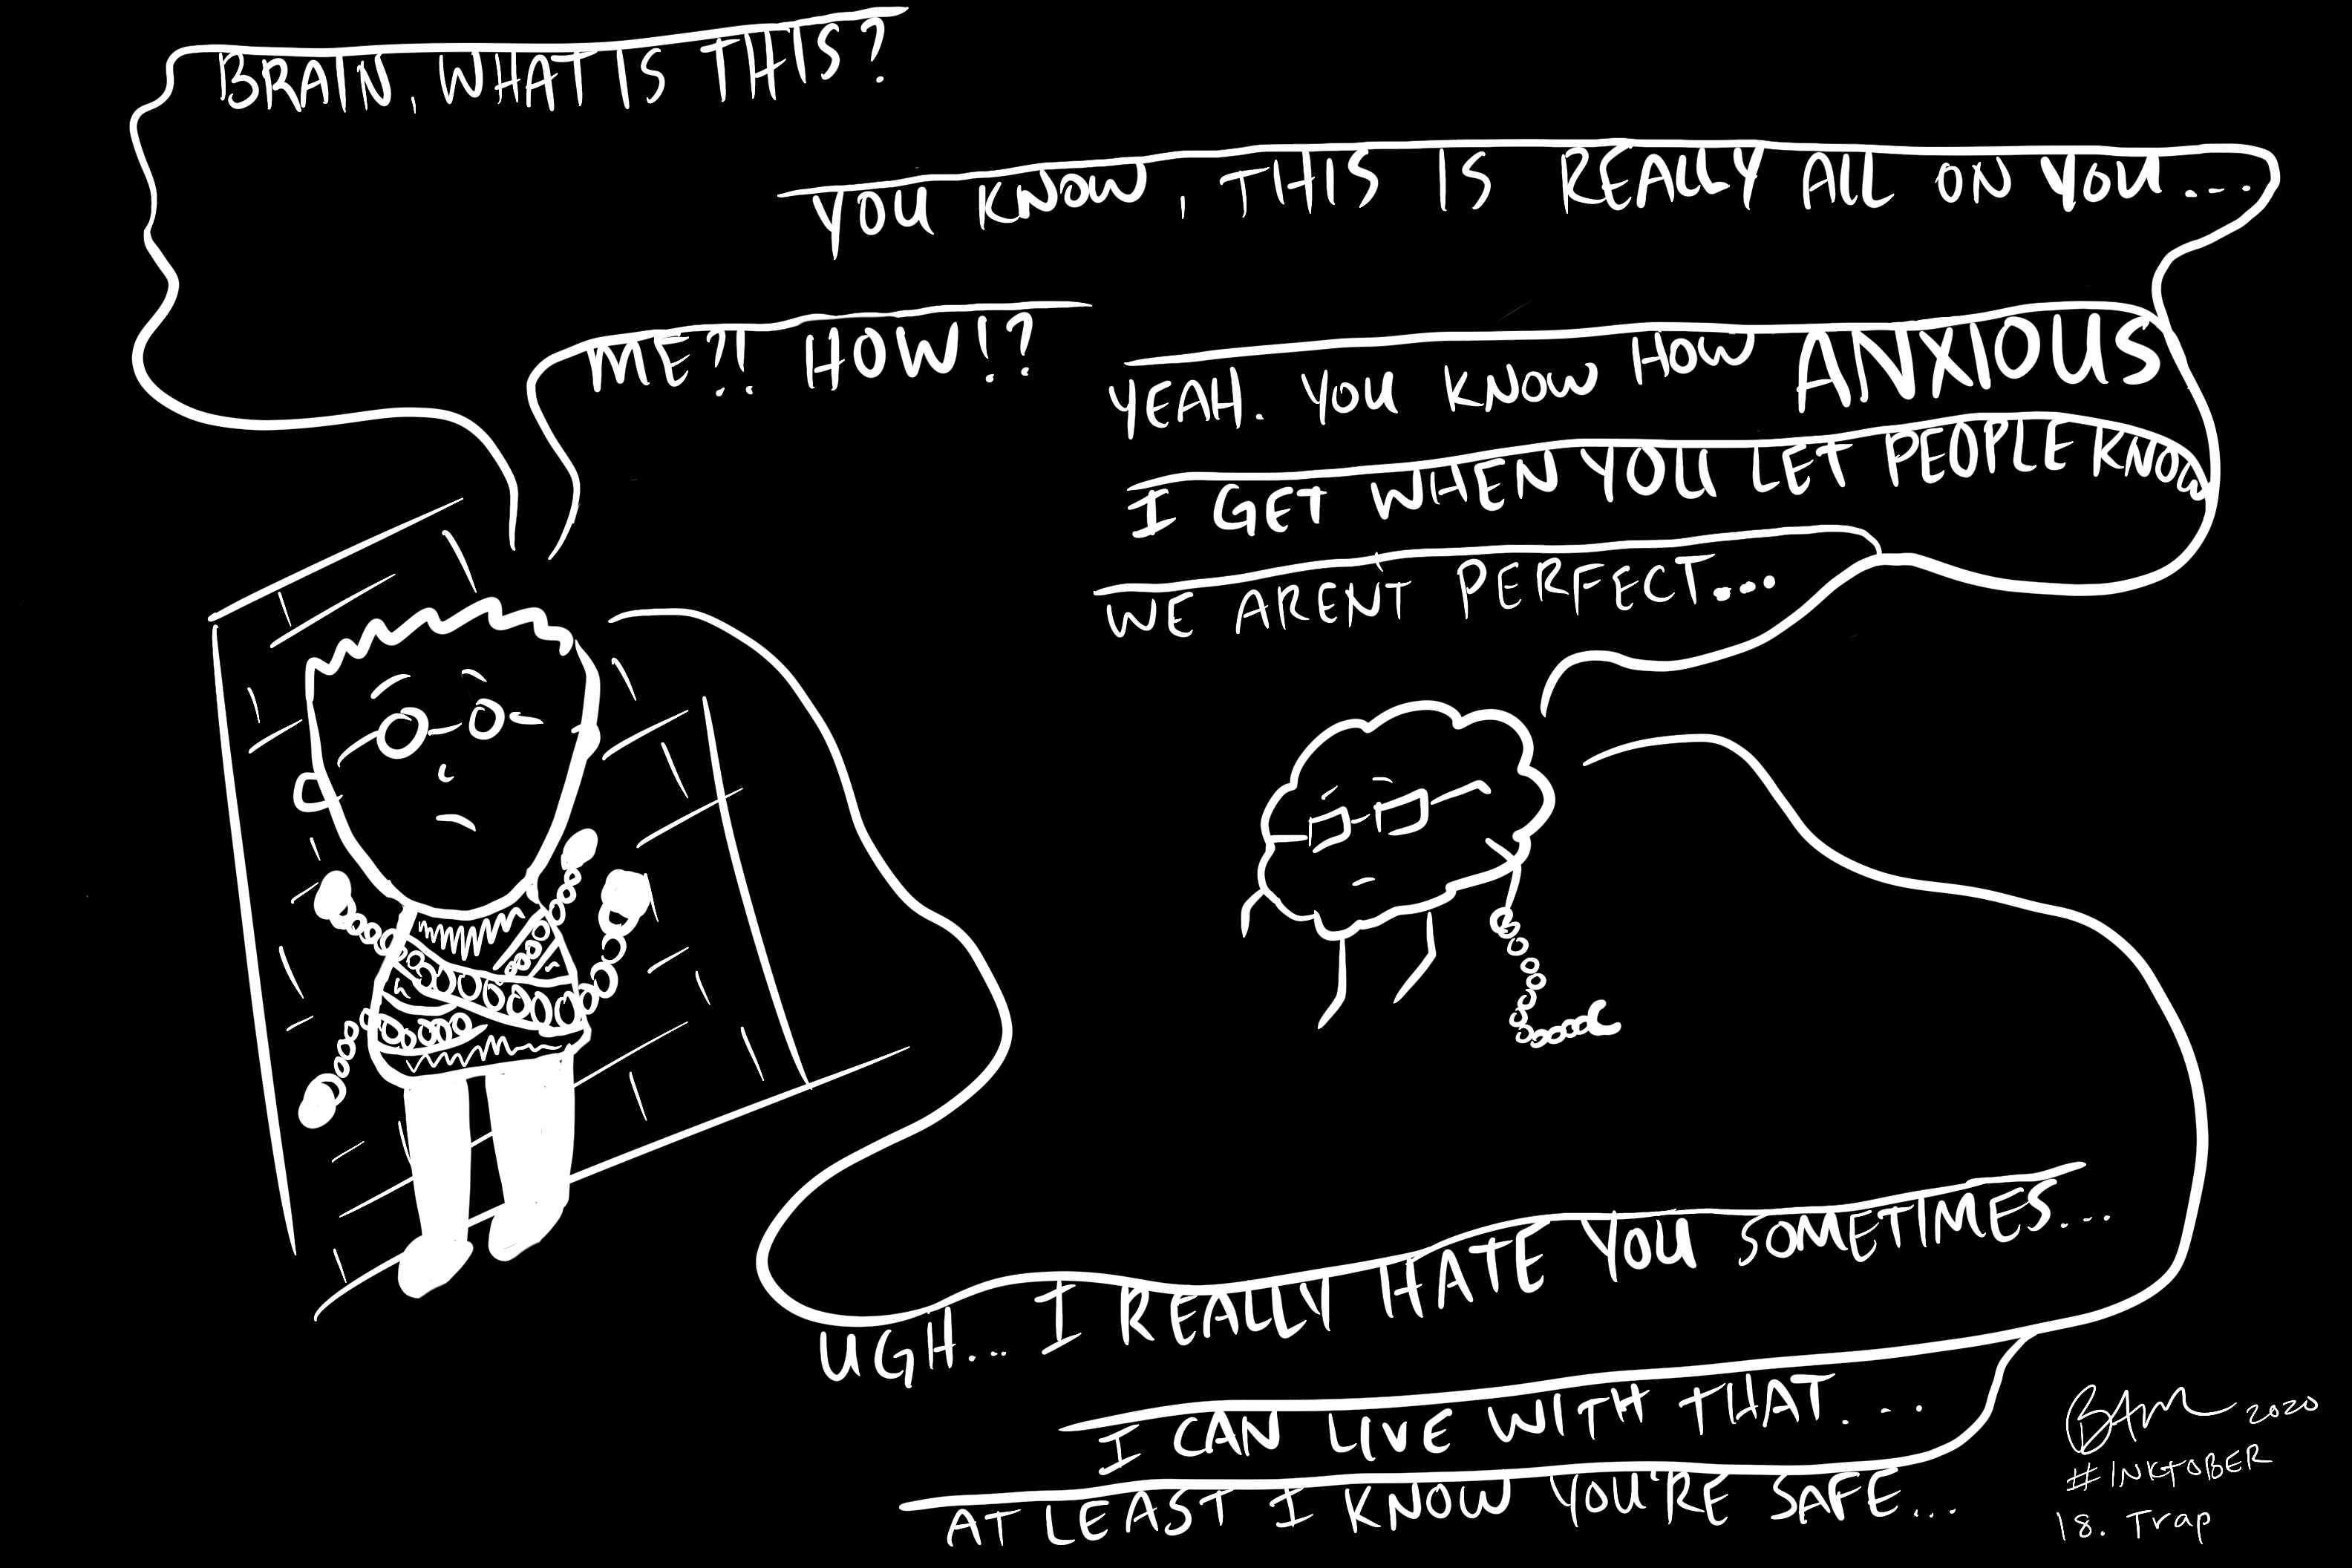 BRAIN, WHAT IS THIS?
YOU KNOW, THIS IS REALLY ALL ON YOU...
ME?! HOW!?
YEAH. YOU KNOW HOW ANXIOUS
I GET WHEN YOU LET PEOPLE KNOW
WE ARENT PERFECT...
UGH... I REALLY HATE YOU SOMETIMES...
I CAN LIVE WITH THAT...
AT LEAST I KNOW YOU'RE SAFE...
BAM 2020
#INKTOBER
18. Trap